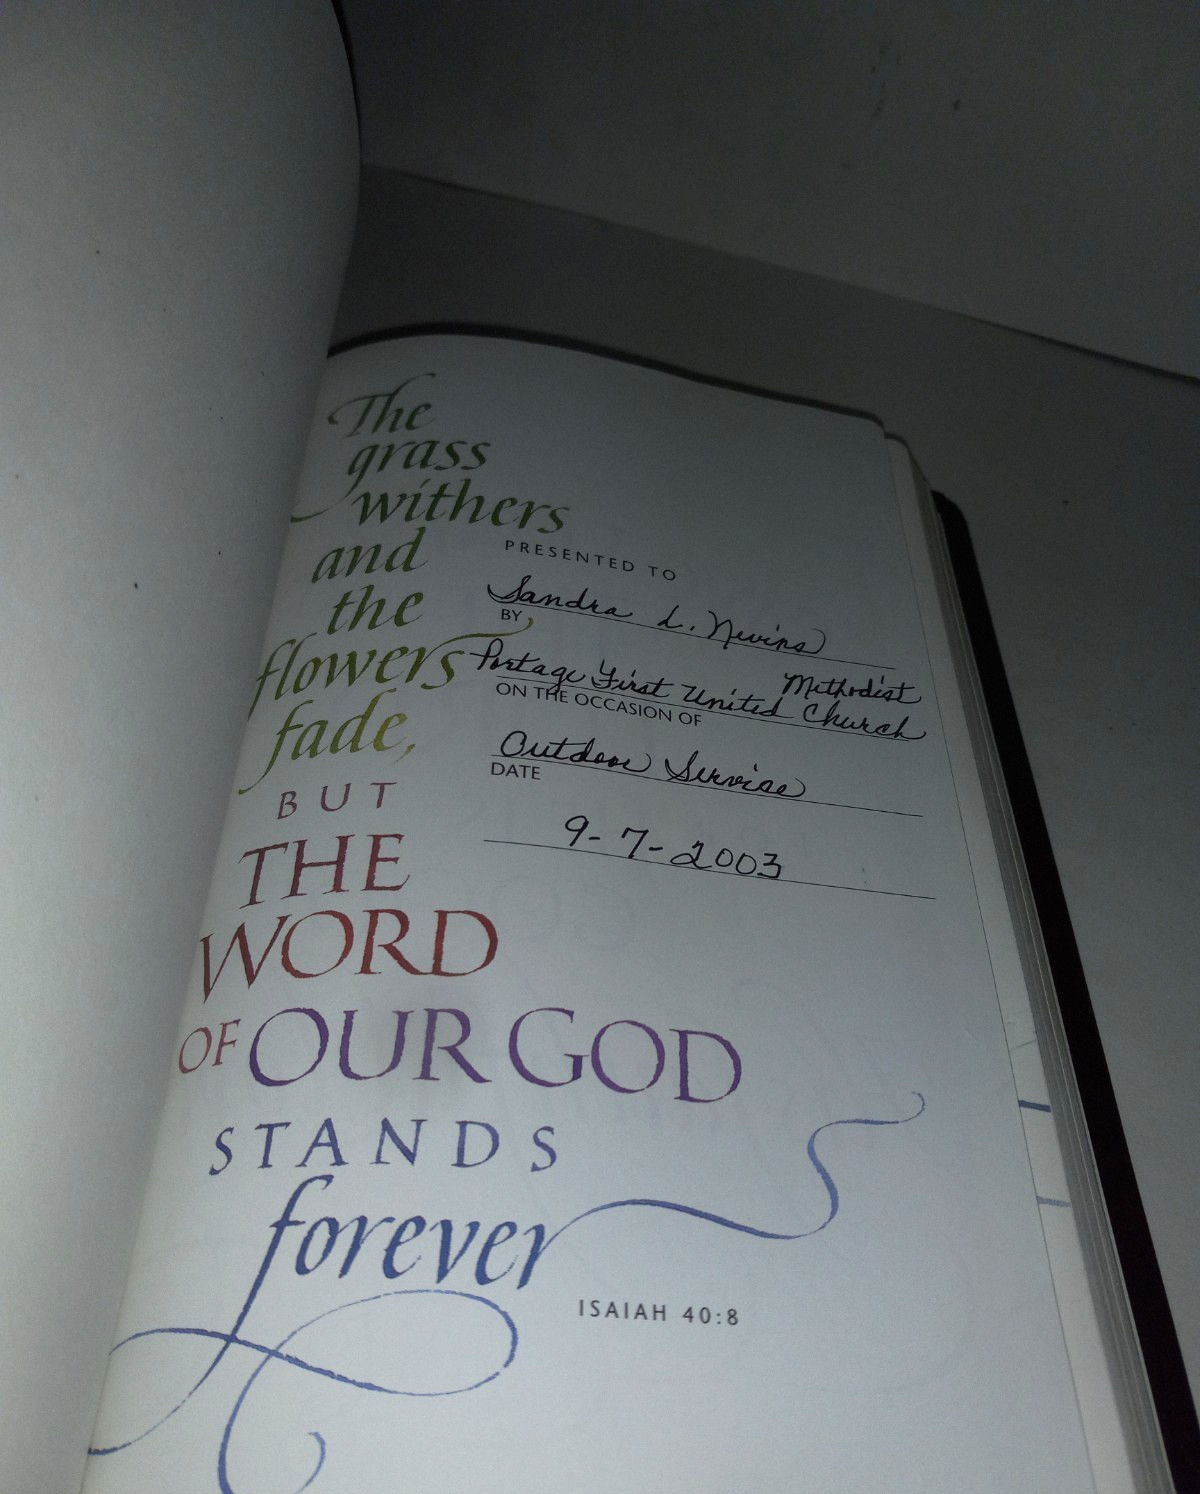 The
grass
withers
and
the
flowers
fade,
BUT
THE
WORD
OF OUR GOD
STANDS
forever
ISAIAH 40:8
PRESENTED TO
Sandra L. Nevins
BY
Portage First United Methodist Church
ON THE OCCASION OF
Outdoor Service
DATE
9-7-2003